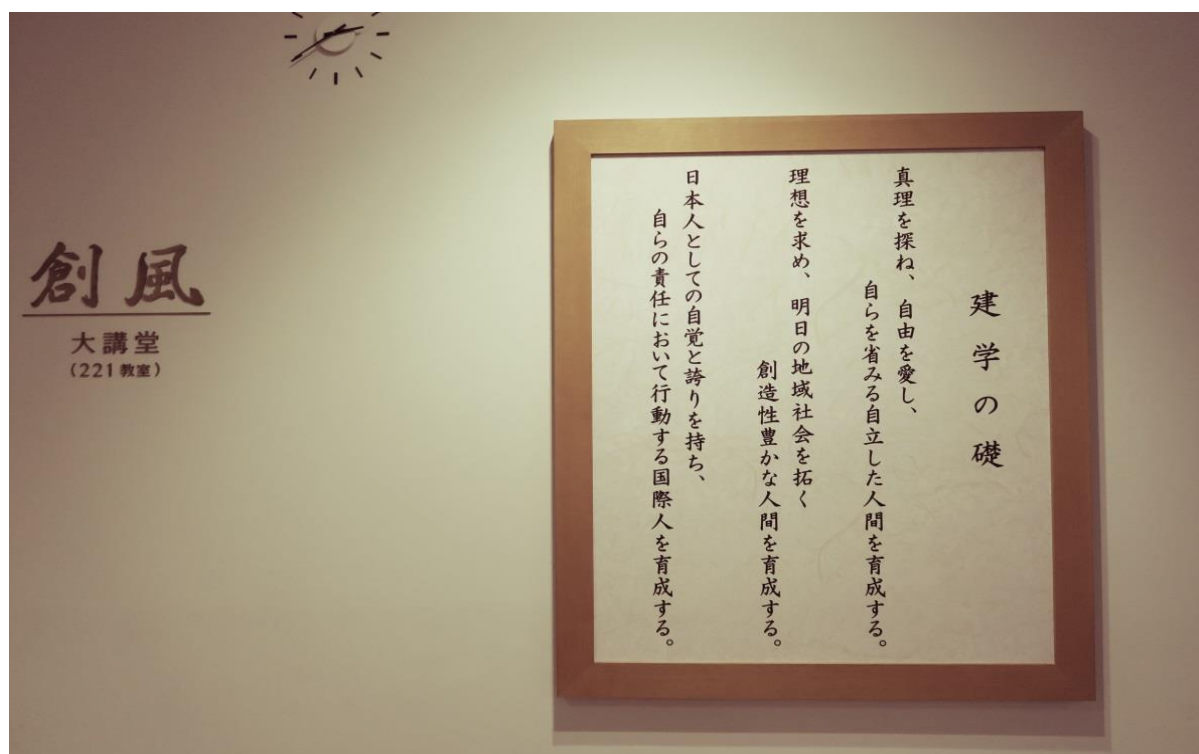 創風
大講堂
(221教室)
建学の礎
真理を探ね、自由を愛し、
自らを省みる自立した人間を育成する。
理想を求め、明日の地域社会を拓く
創造性豊かな人間を育成する。
日本人としての自覚と誇りを持ち、
自らの責任において行動する国際人を育成する。